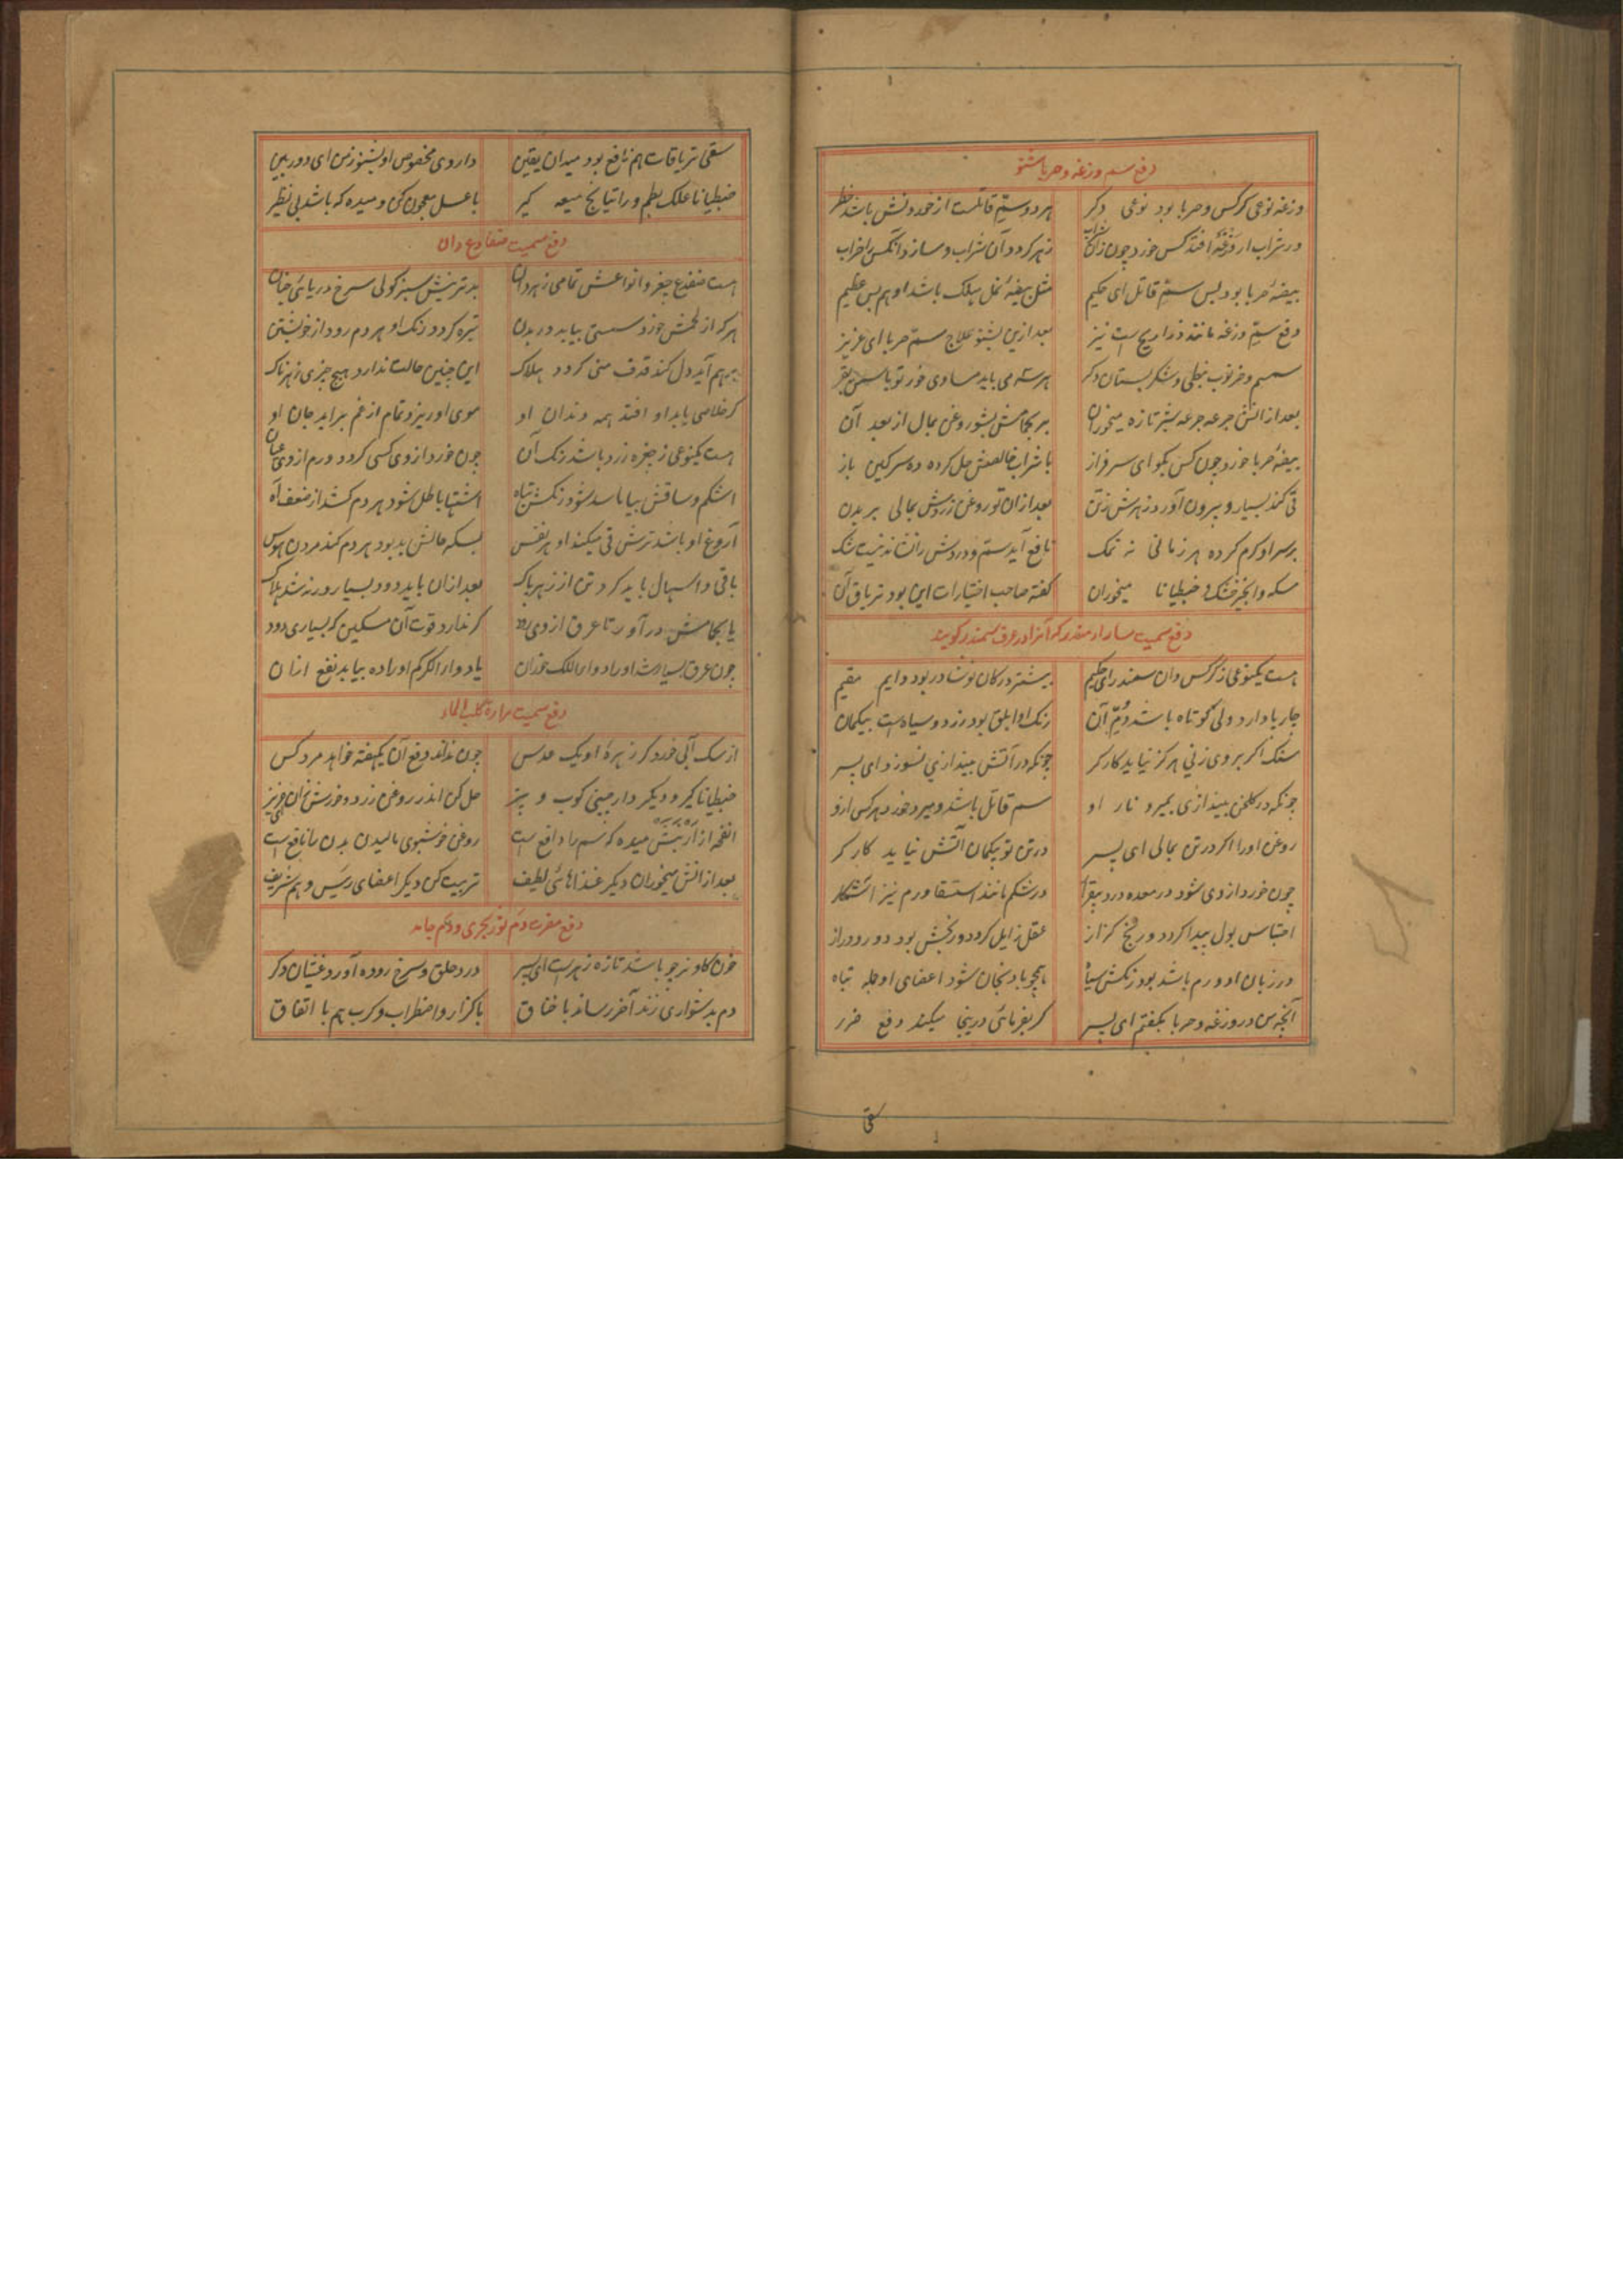 دفع سم وزغه و حربا شنو
وزغه نوعی کرکس و حربا بود نوعی دکر هر دو سمّ قاتلست از خوردنش باشد خطر
در شراب ار وزغهٔ افتد کس خورد چون زان شراب زهر کردد آن شراب و سازد آنکس را خراب
بیضهٔ حربا بود بس سمّ قاتل ای حکیم مثل بیضهٔ نمل مهلک باشد او هم بس عظیم
دفع سمّ وزغه مانند ذراریح است نیز بعد ازین بشنو علاج سمّ حربا ای عزیز
سمسم و خرنوب نبطی و شکر بستان دکر هر سه می باید مساوی
بعد از آنش جرعه جرعه شیر تازه میخوران بر بحامش بشو روغن بمال از بعد آن
بیضهٔ حربا خورد چون کس بکو ای سرفراز با شراب خالصش حل کرده ده سرکین باز
قی کند بسیار و بیرون آورد زهرش ز تن بعد از آن تو روغن زردش بمالی بر بدن
بر سر او کرم کرده هر زمانی نه نمک نافع آید سم و دردش را نشاند نیست شک
مسکه و انجیر خشک و خبطیانا میخوران گفته صاحب اختیارات این بود تریاق آن
دفع سمیت سالامندر که آنرا در عرف سمندر کویند
هست یکنوعی از کرکس دان سمندر ای حکیم بیشتر در کان نوشادر بود دایم مقیم
چار پا دارد ولی کوتاه باشد دُمّ آن رنک او ابلق بود زرد و سیاه است بیکمان
سنک اکر بر وی زنی هرکز نیاید کارکر چونکه در آتش بیندازی نسوزد ای پسر
چونکه در کلخن بیندازی بمیرد نار او سم قاتل باشد و میرد خورد هر کس ازو
روغن او را اکر در تن بمالی ای پسر در تن تو بیکمان آتش نیاید کارکر
چون خورد از وی شود در معده درد بیقرار در شکم مانند استسقا ورم نیز آشکار
احتباس بول پیدا کردد و رنج کزاز عقل زایل کردد و رنجش بود دور و دراز
در زبان او ورم باشد بود رنکش سیاه همچو بادنجان شود اعضای او جمله تباه
آنچه من در وزغه و حربا بکفتم ای پسر کر بفرمائی درینجا میکند دفع ضرر
سقی
سقی تریاقات هم نافع بود میدان یقین داروی مخصوص او بشنو ز من ای دوربین
خبطیانا علک بطم و راتیانج میعه کیر با عسل معجون کن و میده که باشد بی نظیر
دفع سمیت ضفادع دان
هست ضفدع چغز و انواعش تمامی زهر دان بدترینش سبز کولی سرخ دریائی
هر که از لحمش خورد سستی بیابد در بدن تیره کردد رنک او هر دم رود از خویشتن
برهم آید دل کند قذف منی کردد هلاک این چنین حالت ندارد هیچ چیزی زهرناک
کر خلاصی یابد او افتد همه دندان او موی او ریزد تمام از غم براید جان او
هست یکنوعی ز چغزه زرد باشد رنک آن چون خورد از وی کسی کردد ورم از وی عیان
اشکم و ساقش بیاماسد شود رنکش تباه اشتها باطل شود هر دم کشد از ضعف آه
آروغ او باشد ترش قی میکند او هر نفس بسکه حالش بد بود هر دم کند مردن هوس
با قی و اسهال باید کرد تن از زهر پاک بعد از آن باید دود بسیار ورنه شد هلاک
یا بحامش در آور تا عرق از وی رود کر ندارد قوت آن مسکین که بسیاری دود
چون عرق بسیار شد او را دواء اللک خوران یا دواء الکرکم او را ده بیابد نفع از آن
دفع سمیت مرارة کلب الماء
از سک آبی خورد کر زهرهٔ او یک عدس چون نداند دفع آن یکهفته خواهد مرد کس
خبطیانا کیر و دیکر دارچینی کوب و بیز حل کن اندر روغن زرد و خورش زان
انفحه از ارنبش میده که سم را دافع است روغن خوشبوی مالیدن بدن را نافع است
بعد از آنش میخوران دیکر غذاهائی لطیف تربیت کن دیکر اعضای رئیس و هم شریف
دفع مضرت دم ثور بحری و دم جامد
خون کاو نر چو باشد تازه زهر است ای پسر درد حلق و سرخ روده آورد غثیان دکر
دم بدشواری زند آخر رساند با خناق با کزاز و اضطراب و کرب هم با اتفاق